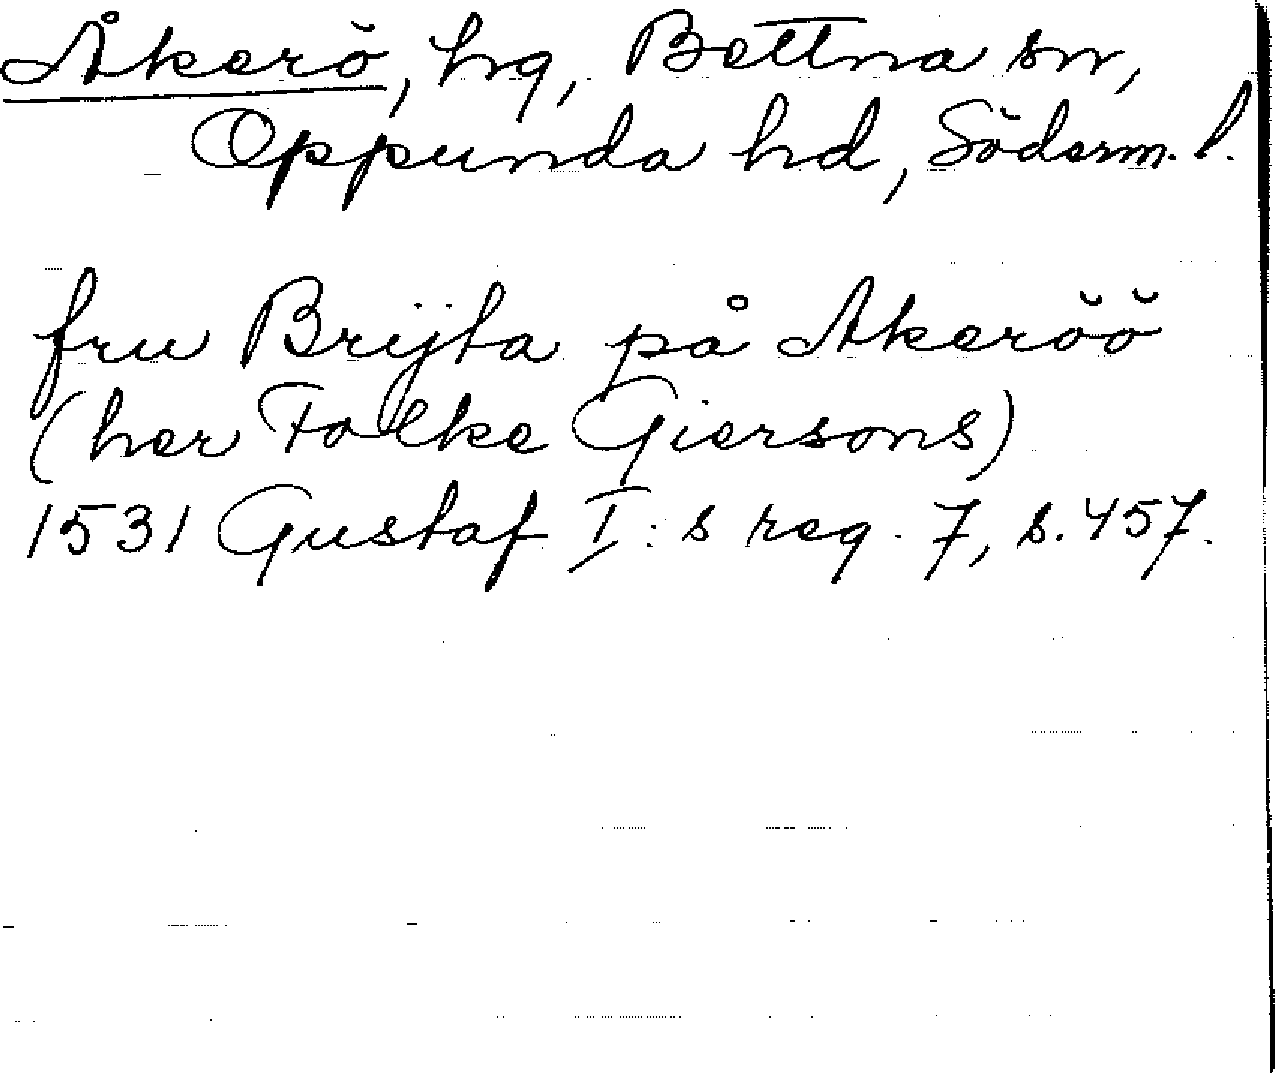 Åkerö, hg, Bettna sn,
Oppunda hd, Söderm. l.
fru Brijta på Akeröö
(her Folke Giersons)
1531 Gustaf I:s reg. 7, s. 457.